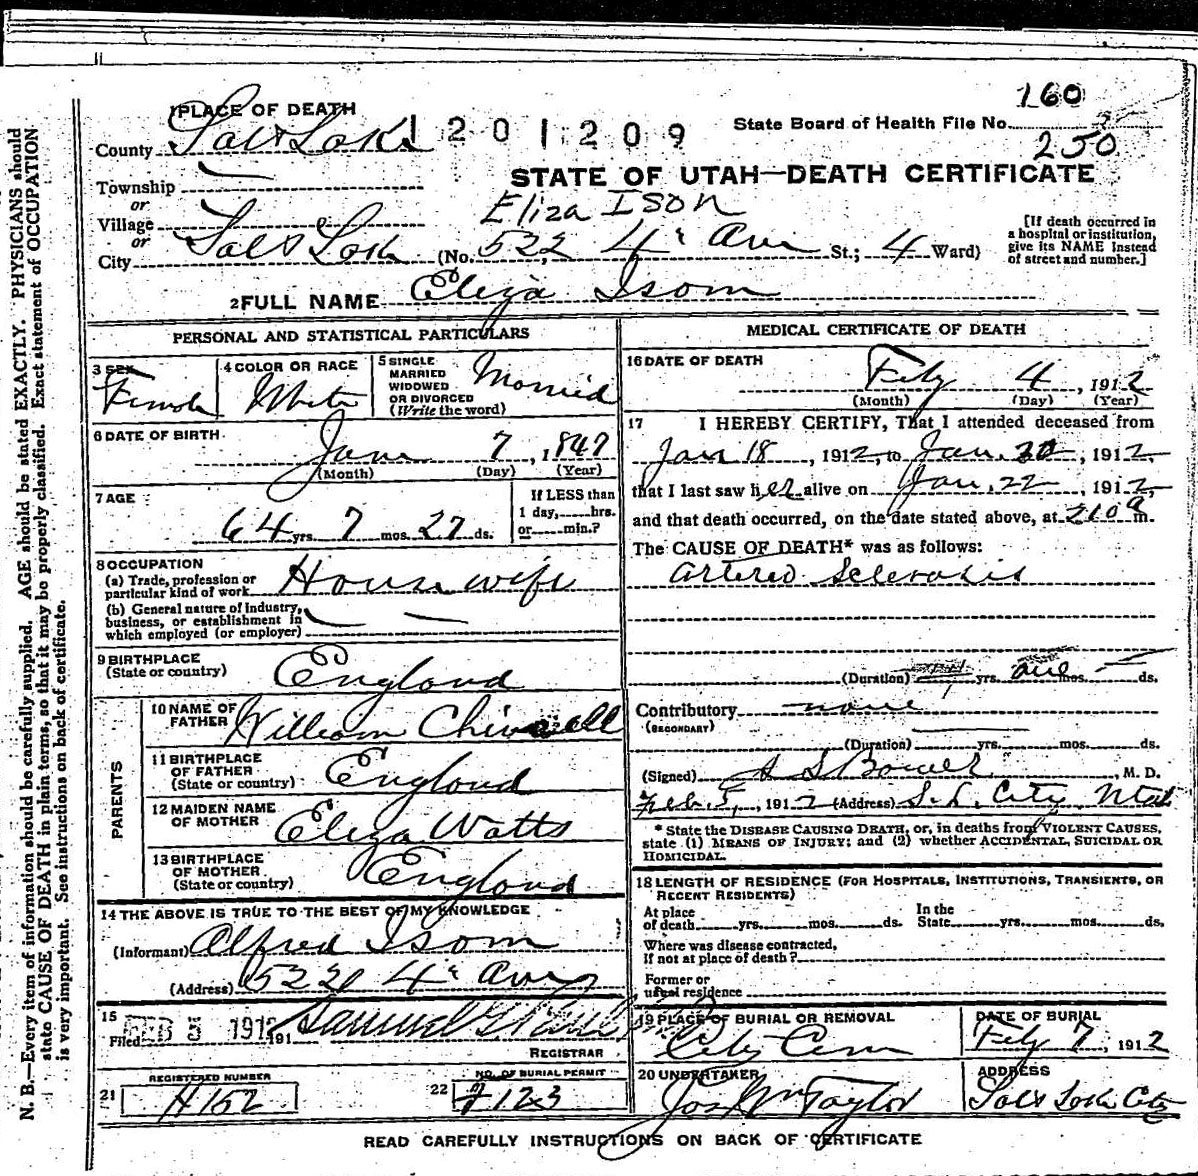 160
1 PLACE OF DEATH
1201209
State Board of Health File No.
250
County Salt Lake
STATE OF UTAH—DEATH CERTIFICATE
Township
or
Village
Eliza Ison
or
City Salt Lake (No. 522 4" Ave St.; 4 Ward)
[If death occurred in
a hospital or institution,
give its NAME instead
of street and number.]
2 FULL NAME Eliza Isom
PERSONAL AND STATISTICAL PARTICULARS
3 SEX
Female
4 COLOR OR RACE
White
5 SINGLE
MARRIED
WIDOWED
OR DIVORCED
(Write the word)
Married
6 DATE OF BIRTH
June 7, 1847
(Month) (Day) (Year)
7 AGE
64 yrs. 7 mos. 27 ds.
If LESS than
1 day, hrs.
or min.?
8 OCCUPATION
(a) Trade, profession or
particular kind of work
Housewife
(b) General nature of industry,
business, or establishment in
which employed (or employer)
9 BIRTHPLACE
(State or country)
England
PARENTS
10 NAME OF
FATHER
William
11 BIRTHPLACE
OF FATHER
(State or country)
England
12 MAIDEN NAME
OF MOTHER
Eliza Watts
13 BIRTHPLACE
OF MOTHER
(State or country)
England
14 THE ABOVE IS TRUE TO THE BEST OF MY KNOWLEDGE
(Informant) Alfred Isom
(Address) 522 4" Ave
15
Filed FEB 5 1912 191 Samuel G.
REGISTRAR
REGISTERED NUMBER
21 H152
NO. OF BURIAL PERMIT
22 F123
MEDICAL CERTIFICATE OF DEATH
16 DATE OF DEATH
Feby 4, 1912
(Month) (Day) (Year)
17 I HEREBY CERTIFY, That I attended deceased from
Jan 18, 1912, to Jan. 22, 1912,
that I last saw her alive on Jan. 22, 1912,
and that death occurred, on the date stated above, at 210 a m.
The CAUSE OF DEATH* was as follows:
Arterio Sclerosis
(Duration) yrs. one mos. ds.
Contributory none
(SECONDARY)
(Duration) yrs. mos. ds.
(Signed) S S Bower, M. D.
Feb. 5, 1912 (Address) S. L. City Utah
* State the DISEASE CAUSING DEATH, or, in deaths from VIOLENT CAUSES,
state (1) MEANS OF INJURY; and (2) whether ACCIDENTAL, SUICIDAL OR
HOMICIDAL.
18 LENGTH OF RESIDENCE (FOR HOSPITALS, INSTITUTIONS, TRANSIENTS, OR
RECENT RESIDENTS)
At place
of death yrs. mos. ds.
In the
State yrs. mos. ds.
Where was disease contracted,
If not at place of death?
Former or
usual residence
19 PLACE OF BURIAL OR REMOVAL
City Cem
DATE OF BURIAL
Feby 7, 1912
20 UNDERTAKER
Jos Wm Taylor
ADDRESS
Salt Lake City
READ CAREFULLY INSTRUCTIONS ON BACK OF CERTIFICATE
N. B.—Every item of information should be carefully supplied. AGE should be stated EXACTLY. PHYSICIANS should
state CAUSE OF DEATH in plain terms, so that it may be properly classified. Exact statement of OCCUPATION
is very important. See instructions on back of certificate.